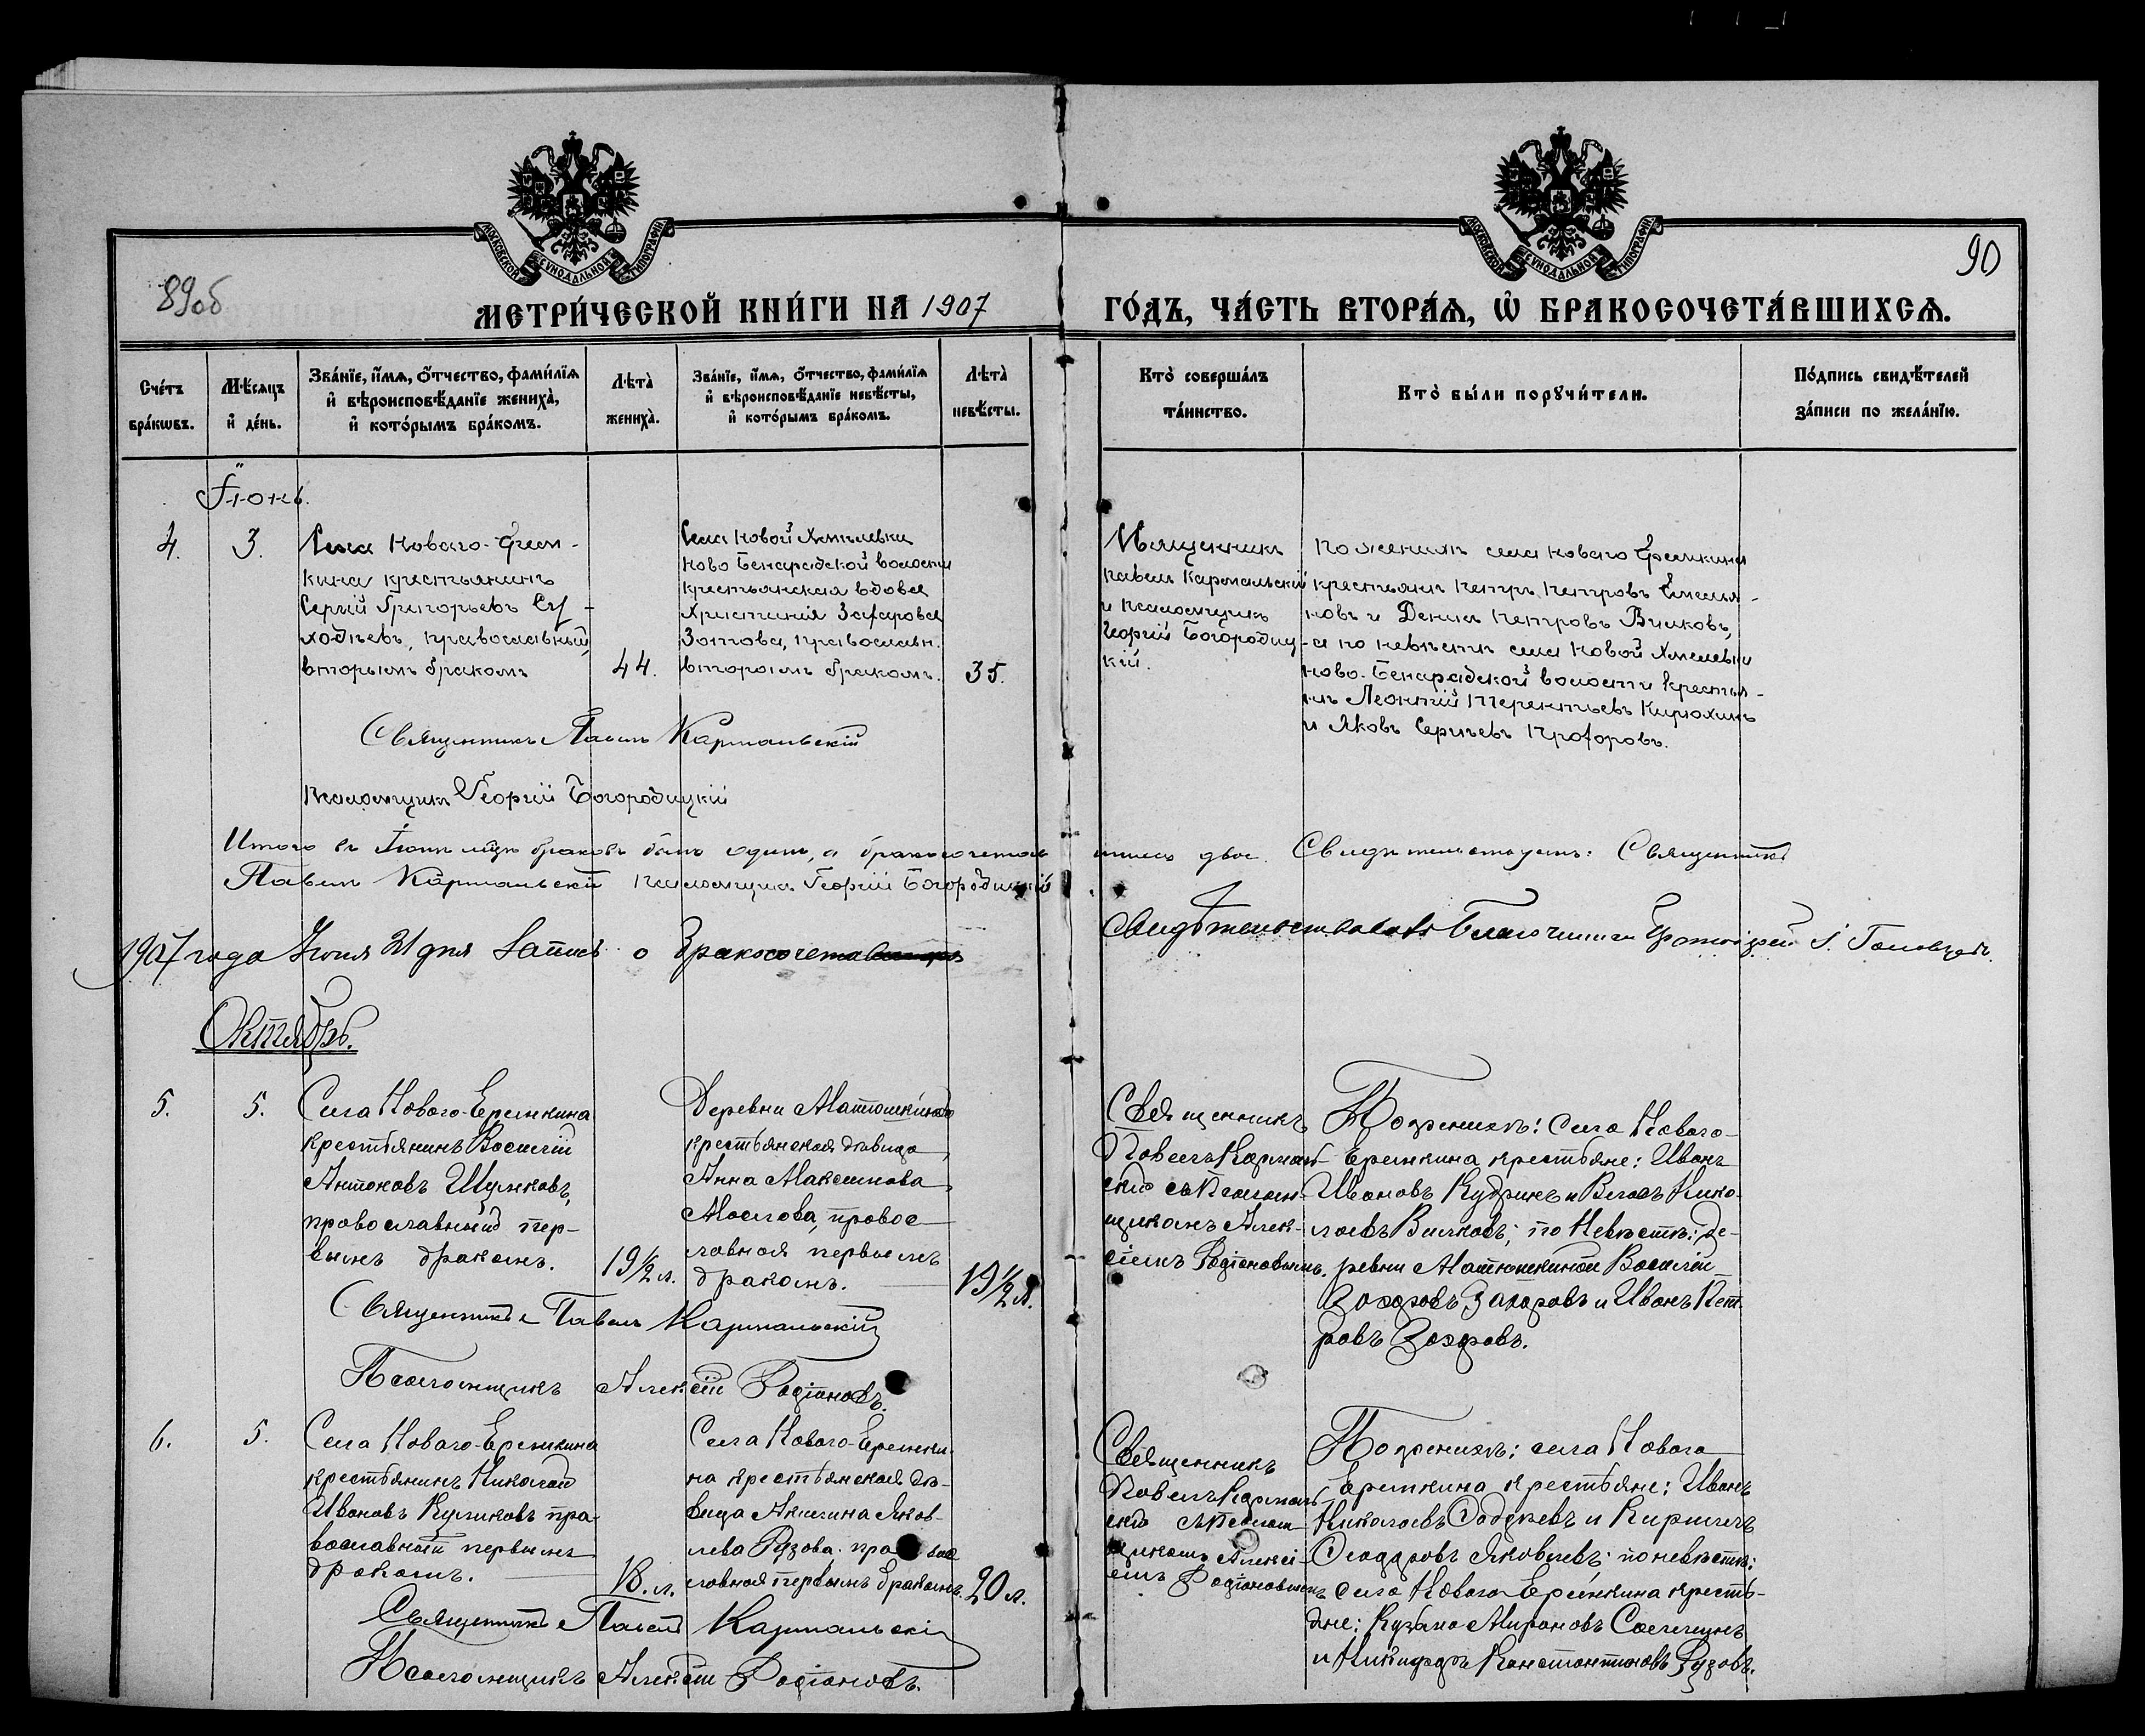 МОСКОВСКОЙ СѴНОДАЛЬНОЙ ТИПОГРАФІИ
МОСКОВСКОЙ СѴНОДАЛЬНОЙ ТИПОГРАФІИ
89об
90
МЕТРИ́ЧЕСКОЙ КНИ́ГИ НА 1907 ГО́ДЪ, ЧА́СТЬ ВТОРА́Ѧ, Ѡ҆ БРАКОСОЧЕТА́ВШИХСѦ.
Сче́тъ
бра́кѡвъ.
Мѣ́сяцъ
и҆ де́нь.
Зва́нїе, и҆́мѧ, ѻ҆́тчество, фами́лїѧ
и҆ вѣроисповѣ́данїе жениха̀,
и҆ кото́рымъ бра́комъ.
Лѣта̀
жениха̀.
Зва́нїе, и҆́мѧ, ѻ҆́тчество, фами́лїѧ
и҆ вѣроисповѣ́данїе невѣ́сты,
и҆ кото́рымъ бра́комъ.
Лѣта̀
невѣ́сты.
Кто̀ соверша́лъ
та́инство.
Кто̀ бы́ли порꙋчи́тели.
По́дпись свидѣ́телей
за́писи по жела́нїю.
Іюнь.
4.
3.
Села Новаго-Ерем-
кина крестьянинъ
Сергій Григорьевъ Су-
ходѣевъ, православный,
вторымъ бракомъ
44.
Села Новой Хмѣлевки
Ново Бинарадской волости
крестьянская вдова
Христинія Захарова
Зотова, православн.
вторымъ бракомъ.
35.
Священникъ
Павелъ Кармальскій
и псаломщикъ
Георгій Богородиц-
кій.
По женихѣ села Новаго Еремкина
крестьяне Петръ Петровъ Емелья-
новъ и Денисъ Петровъ Вилковъ,
а по невѣстѣ села Новой Хмелевки
Ново-Бинарадской волости крестья-
нѣ Леонтій Терентьевъ Кирюхинъ
и Яковъ Сергѣевъ Прохоровъ.
Священникъ Павелъ Кармальскій
Псаломщикъ Георгій Богородицкій
Итого въ Іюнѣ мцѣ браковъ былъ одинъ, а бракосочетав шихся двое. Свидѣтельствуемъ: Священникъ
Павелъ Кармальскій Псаломщикъ Георгій Богородицкій.
1907 года Іюня 21 дня Запись о Бракосочета Свидѣтельствовалъ Благочинный Протоіерей І.
Октябрь.
5.
5.
Села Новаго-Еремкина
крестьянинъ Василій
Антоновъ Шумковъ,
православный пер-
вымъ бракомъ.
19½ л.
Деревни Матюшкиной
крестьянская дѣвица
Анна Максимова
Маслова, правос-
лавная первымъ
бракомъ.
19½ л.
Священникъ
Павелъ Кармаль-
скій съ Псалом-
щикомъ Алек-
сѣемъ Родіоновымъ.
По женихѣ: села Новаго-
Еремкина крестьяне: Иванъ
Ивановъ Кудринъ и Власъ Нико-
лаевъ Вилковъ; по Невѣстѣ: де-
ревни Матюшкиной Василій
Захаровъ Захаровъ и Иванъ Пет-
ровъ Захаровъ.
Священникъ Павелъ Кармальскій
Псаломщикъ Алексій Родіоновъ.
6.
5.
Села Новаго-Еремкина
крестьянинъ Николай
Ивановъ Куликовъ пра-
вославный первымъ
бракомъ.
18. л.
Села Новаго-Еремки-
на крестьянская дѣ-
вица Акилина Яков-
лева Рузова. правос
лавная первымъ бракомъ.
20 л.
Священникъ
Павелъ Кармаль-
скій съ Псалом
щикомъ Алексі-
емъ Родіоновымъ
По женихѣ: села Новаго
Еремкина крестьяне: Иванъ
Николаевъ и Кириллъ
Ѳеодоровъ Яковлевъ; по невѣстѣ:
села Новаго Еремкина кресть-
яне: Кузьма Мироновъ
и Никифоръ Константиновъ Рузовъ.
Священникъ Павелъ Кармальскій
Псаломщикъ Алексій Родіоновъ.